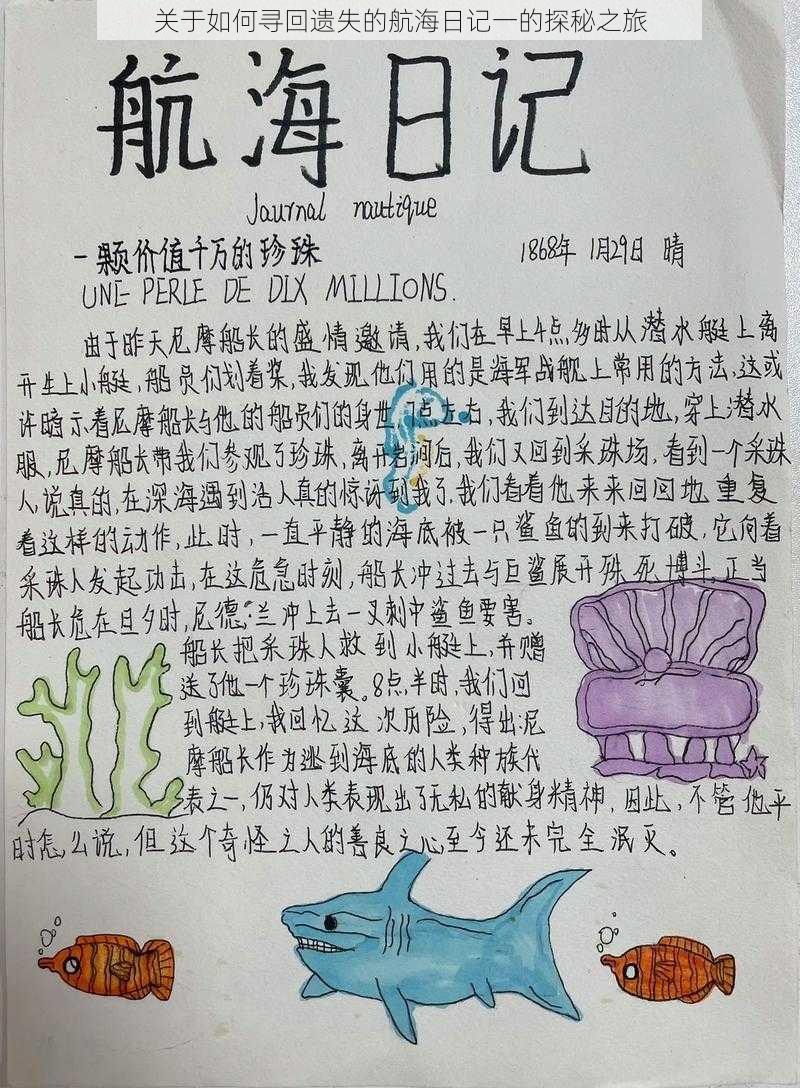 关于如何寻回遗失的航海日记一的探秘之旅
航海日记
Journal nautique
一颗价值千万的珍珠 1868年 1月29日 晴
UNE PERLE DE DIX MILLIONS.
由于昨天尼摩船长的盛情邀请,我们在早上4点多时从潜水艇上离
开坐上小艇,船员们划着桨,我发现他们用的是海军战舰上常用的方法,这或
许暗示着尼摩船长与他的船员们的身世,门点左右,我们到达目的地,穿上潜水
服,尼摩船长带我们参观了珍珠,离开岩洞后,我们又回到采珠场,看到一个采珠
人,说真的,在深海遇到活人真的惊讶到我了,我们看着他来来回回地重复
着这样的动作,此时,一直平静的海底被一只鲨鱼的到来打破,它向着
采珠人发起功击,在这危急时刻,船长冲过去与巨鲨展开殊死博斗,正当
船长危在旦夕时,尼德·兰冲上去一叉刺中鲨鱼要害。
船长把采珠人救到小艇上,并赠
送了他一个珍珠囊。8点半时,我们回
到艇上,我回忆这次历险,得出:尼
摩船长作为逃到海底的人类种族代
表之一,仍对人类表现出了无私的献身精神,因此,不管他平
时怎么说,但这个奇怪之人的善良之心至今还未完全泯灭。